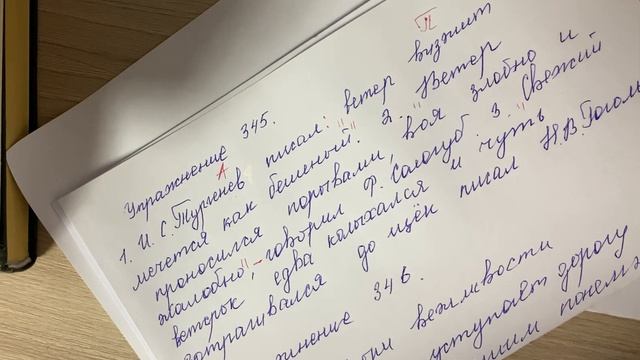 Упражнение 345.
П
А
1. И. С. Тургенев писал: "ветер визжит
мечется как бешеный". 2. "Ветер
проносился порывами, воя злобно и
жалобно", – говорил Ф. Сологуб 3. "Свежий
ветерок едва колыхался и чуть"
дотрагивался до щёк писал Н.В. Гогол
346.
вежливости
уступает дорогу